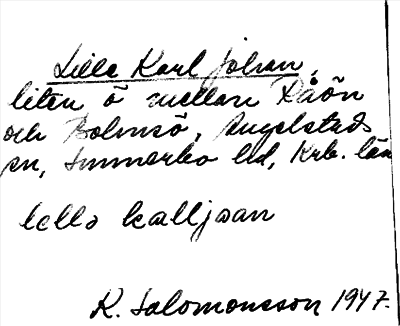 Lille Karl Johan,
liten ö mellan Råön
och Bolmsö, Angelstads
sn, Sunnerbo hd, Krb. län
lellə kalljoan
R. Salomonsson 1947.